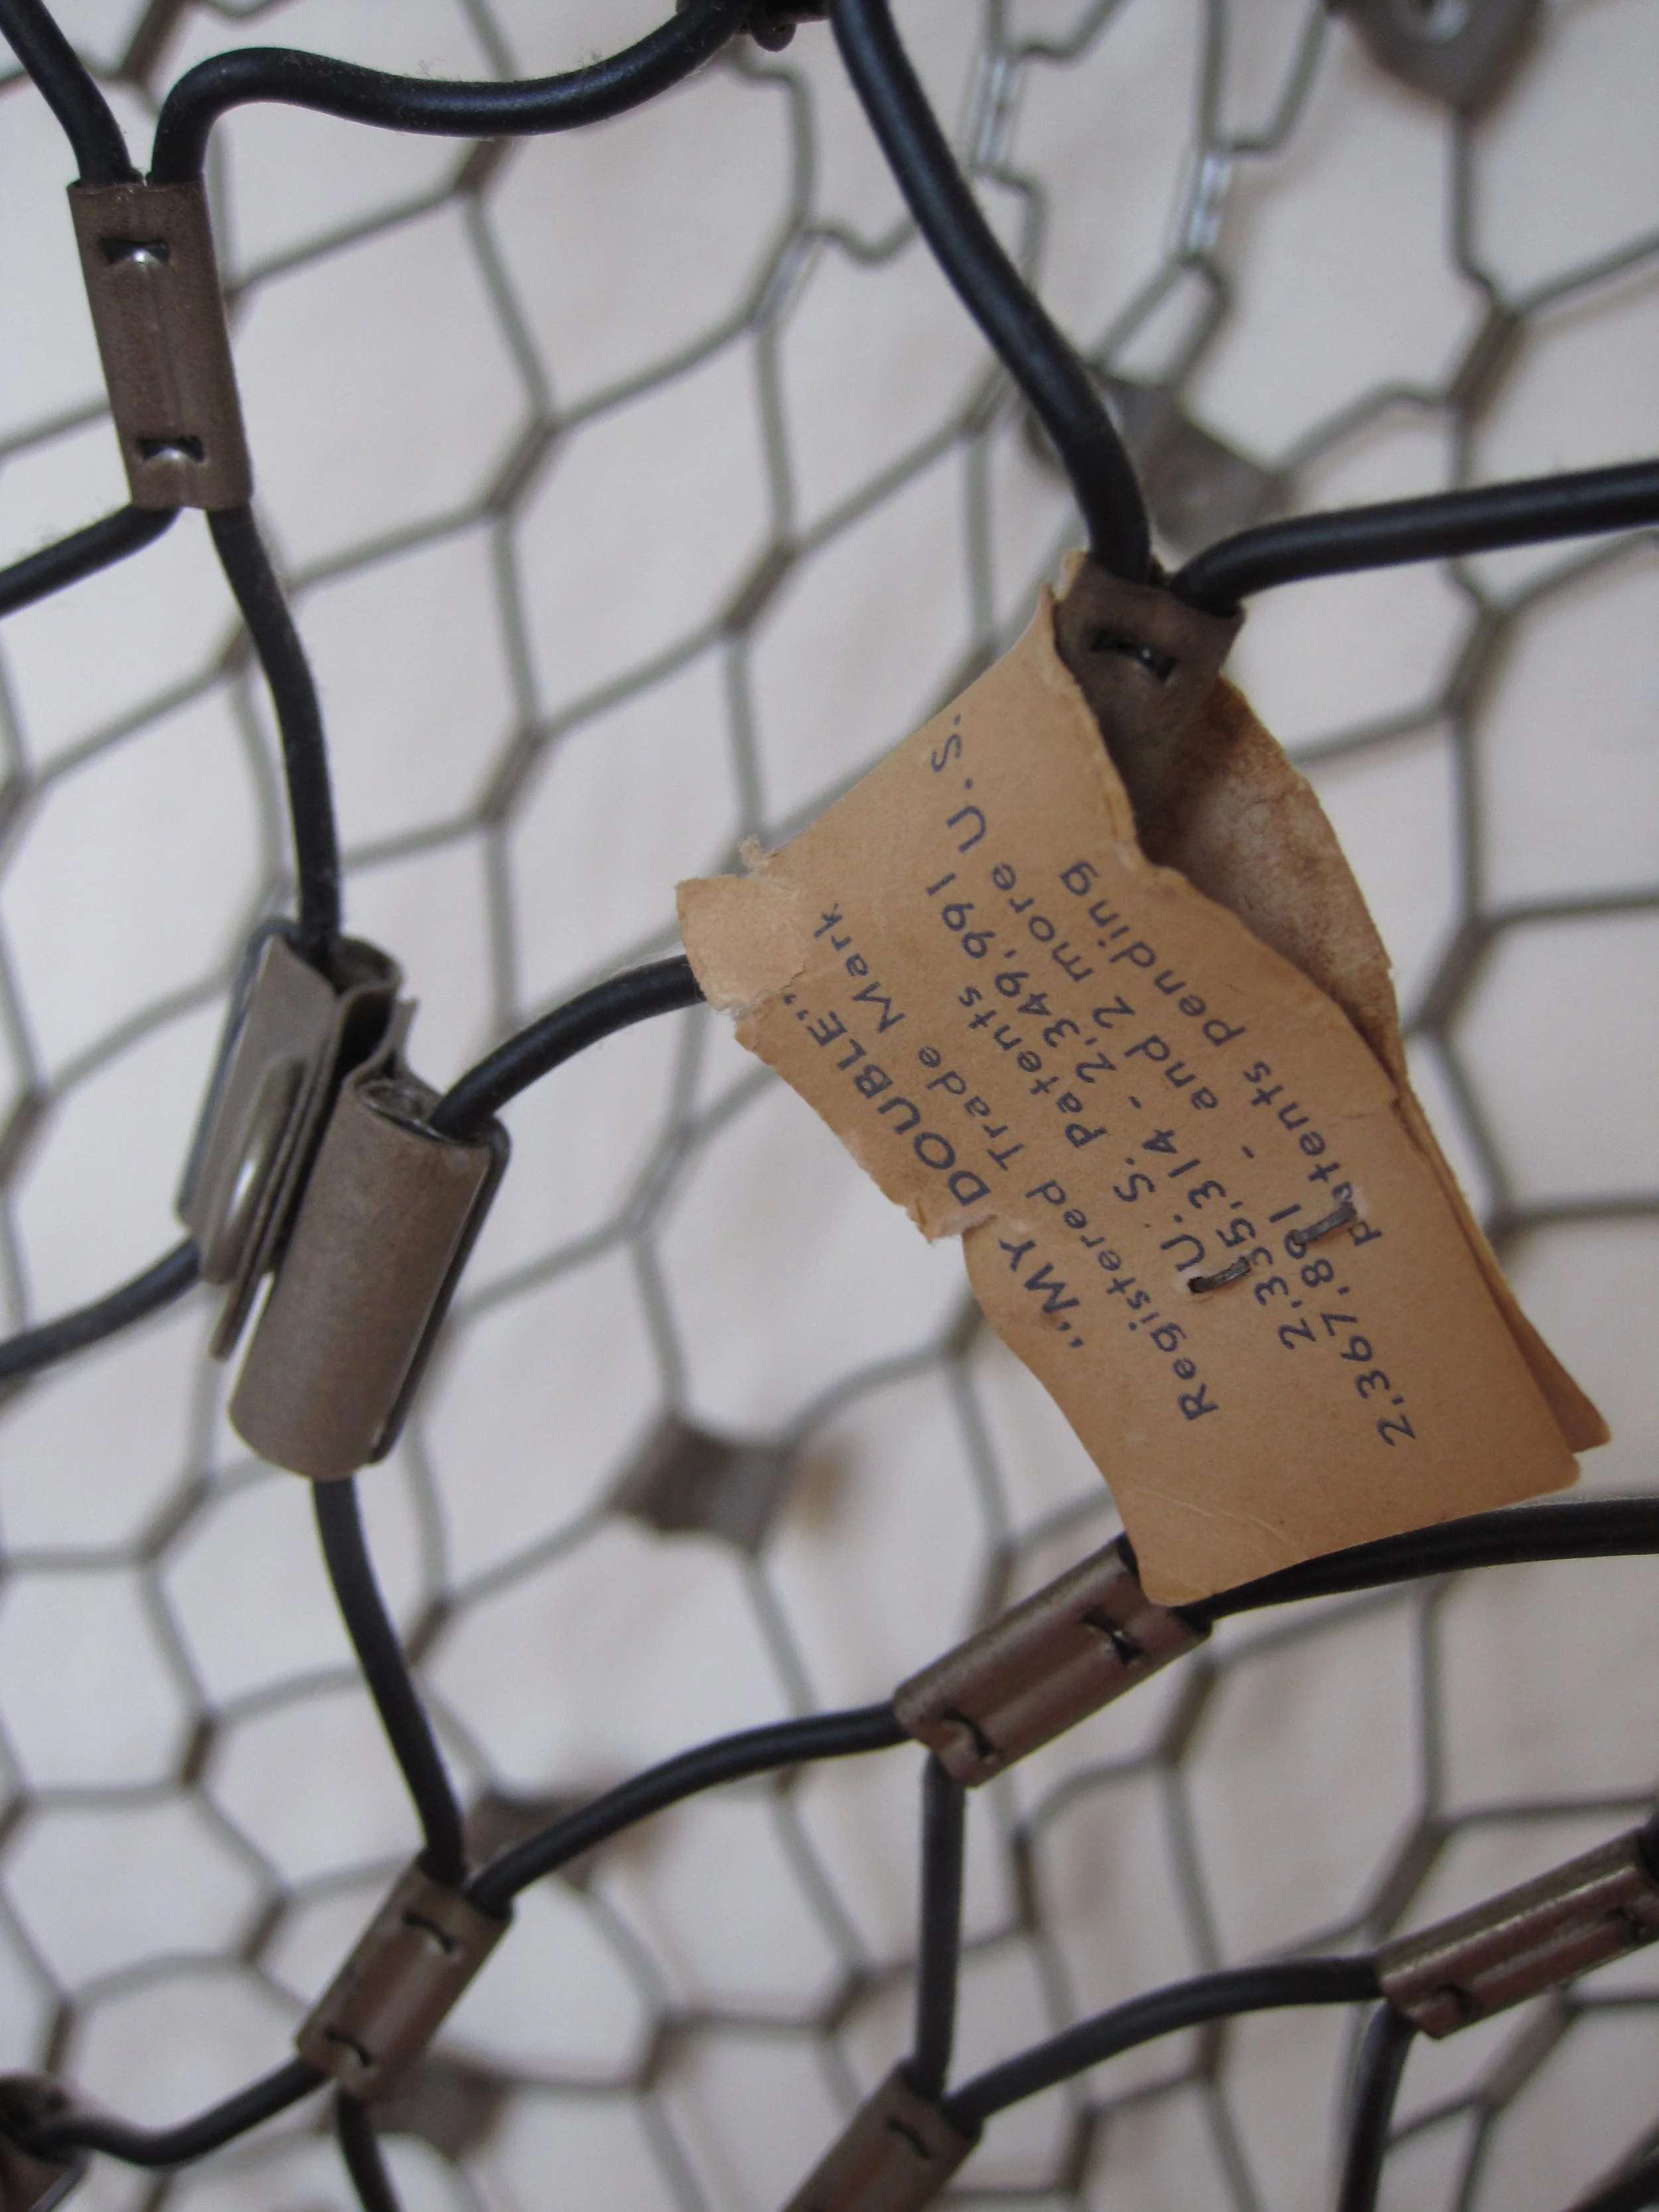 "MY DOUBLE"
Registered Trade Mark
U. S. Patents
2,335,314 - 2,349,991
2,367,891 - and 2 more U.S.
patents pending